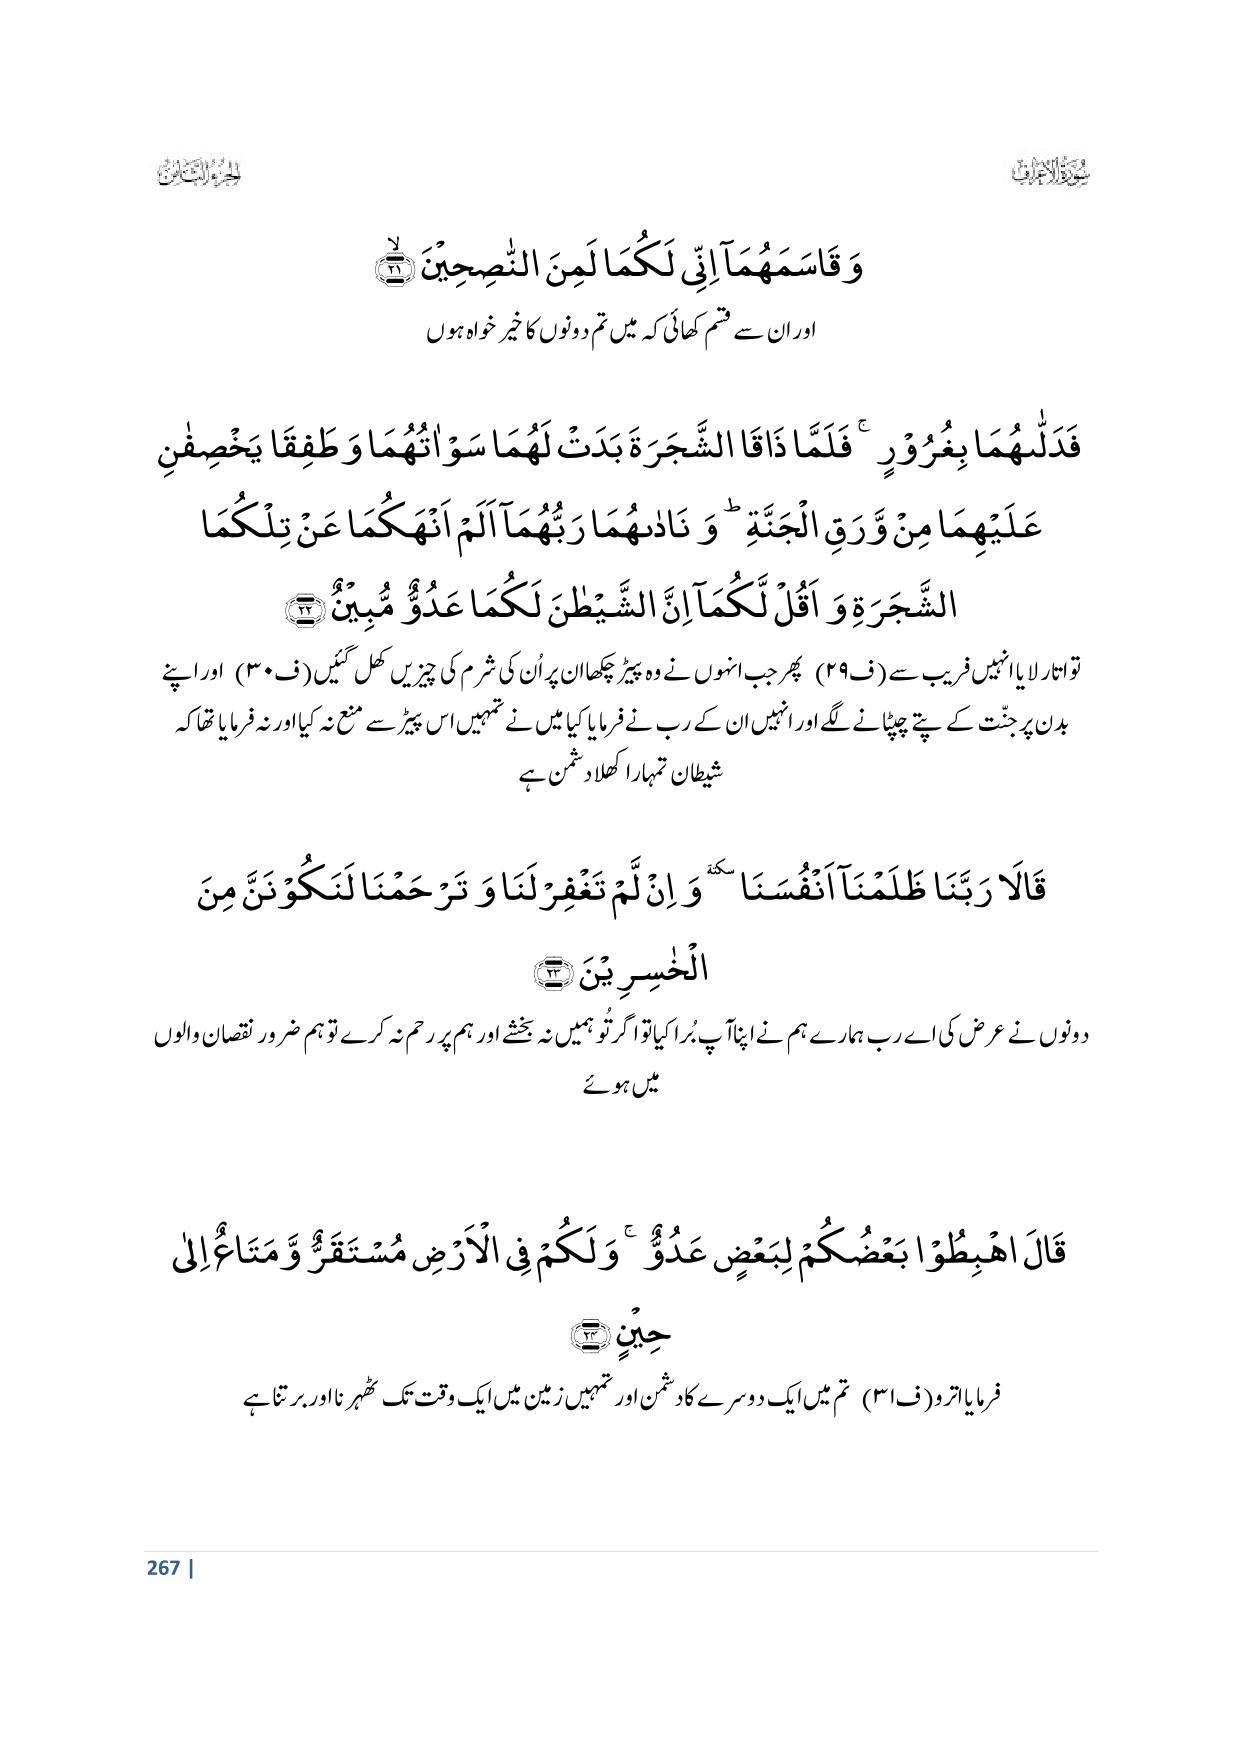 سورة الاعراف
الجزء الثامن
وَ قَاسَمَهُمَاۤ اِنِّیْ لَكُمَا لَمِنَ النّٰصِحِیْنَۙ۝۲۱
اور ان سے قسم کھائی کہ میں تم دونوں کا خیر خواہ ہوں
فَدَلّٰىهُمَا بِغُرُوْرٍ ۚ فَلَمَّا ذَاقَا الشَّجَرَةَ بَدَتْ لَهُمَا سَوْاٰتُهُمَا وَ طَفِقَا یَخْصِفٰنِ
عَلَیْهِمَا مِنْ وَّرَقِ الْجَنَّةِ ؕ وَ نَادٰىهُمَا رَبُّهُمَاۤ اَلَمْ اَنْهَكُمَا عَنْ تِلْكُمَا
الشَّجَرَةِ وَ اَقُلْ لَّكُمَاۤ اِنَّ الشَّیْطٰنَ لَكُمَا عَدُوٌّ مُّبِیْنٌ۝۲۲
تو اتار لایا انہیں فریب سے (ف۲۹) پھر جب انہوں نے وہ پیڑ چکھا ان پر اُن کی شرم کی چیزیں کھل گئیں (ف۳۰) اور اپنے
بدن پر جنّت کے پتے چپٹانے لگے اور انہیں ان کے رب نے فرمایا کیا میں نے تمہیں اس پیڑ سے منع نہ کیا اور نہ فرمایا تھا کہ
شیطان تمہارا کھلا دشمن ہے
قَالَا رَبَّنَا ظَلَمْنَاۤ اَنْفُسَنَا سكتة وَ اِنْ لَّمْ تَغْفِرْ لَنَا وَ تَرْحَمْنَا لَنَكُوْنَنَّ مِنَ
الْخٰسِرِیْنَ۝۲۳
دونوں نے عرض کی اے رب ہمارے ہم نے اپنا آپ بُرا کیا تو اگر تُو ہمیں نہ بخشے اور ہم پر رحم نہ کرے تو ہم ضرور نقصان والوں
میں ہوئے
قَالَ اهْبِطُوْا بَعْضُكُمْ لِبَعْضٍ عَدُوٌّ ۚ وَ لَكُمْ فِی الْاَرْضِ مُسْتَقَرٌّ وَّ مَتَاعٌ اِلٰى
حِیْنٍ۝۲۴
فرمایا اترو (ف۳۱) تم میں ایک دوسرے کا دشمن اور تمہیں زمین میں ایک وقت تک ٹھہرنا اور برتنا ہے
267 |